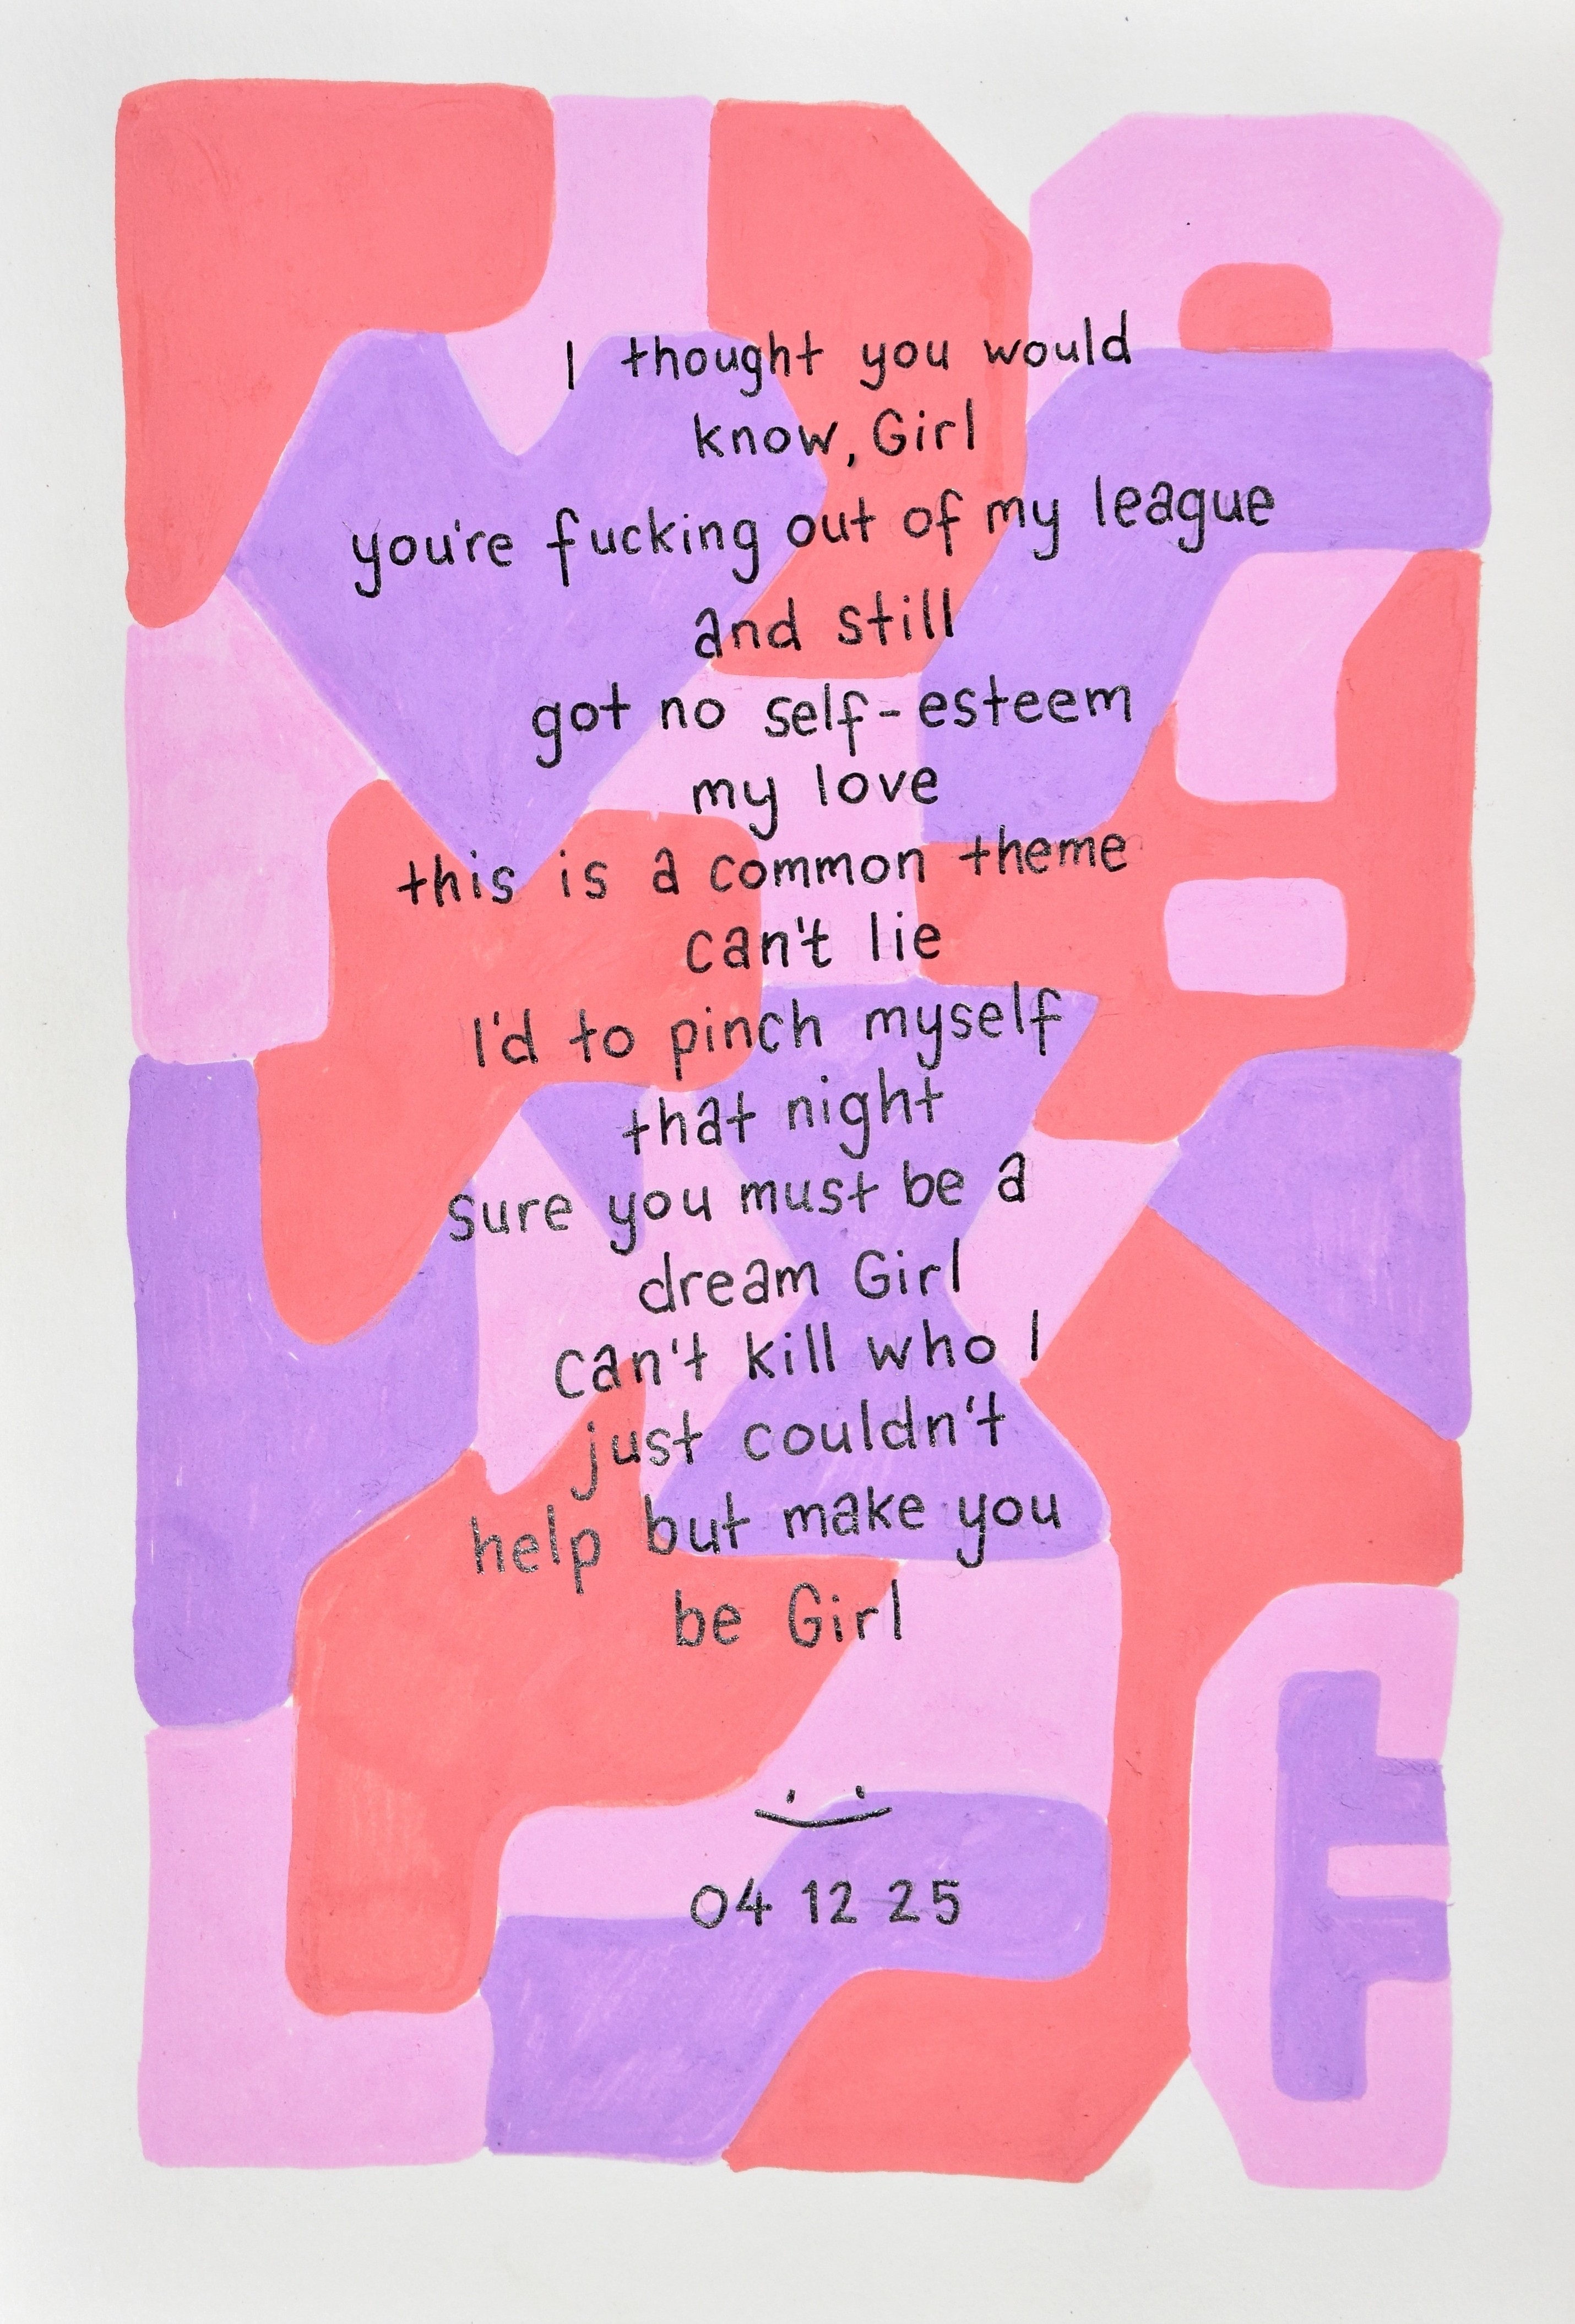 I thought you would
know, Girl
you're fucking out of my league
and still
got no self-esteem
my love
this is a common theme
can't lie
I'd to pinch myself
that night
sure you must be a
dream Girl
can't kill who I
just couldn't
help but make you
be Girl
04 12 25